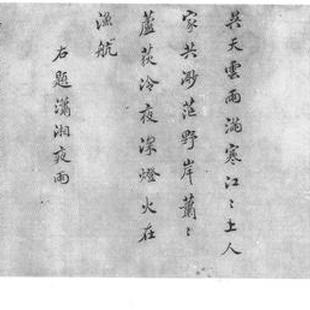 共天雲雨滿寒江〻上人
家共渺茫野岸蕭〻
蘆荻冷夜深燈火在
漁航
右題瀟湘夜雨